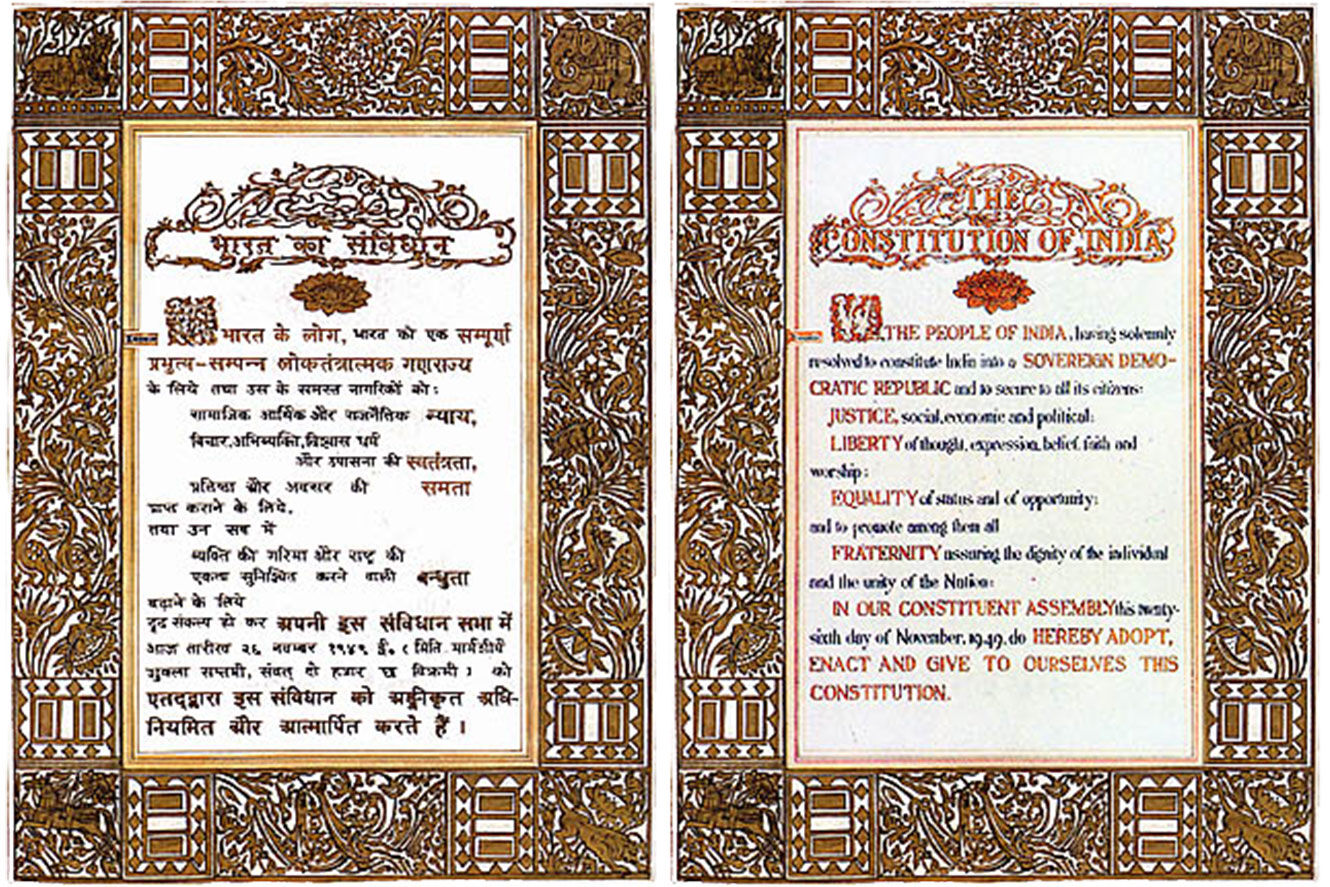 भारत का संविधान
हम भारत के लोग, भारत को एक सम्पूर्ण
प्रभुत्व-सम्पन्न लोकतंत्रात्मक गणराज्य
के लिये तथा उस के समस्त नागरिकों को:
सामाजिक आर्थिक और राजनैतिक न्याय,
विचार,अभिव्यक्ति,विश्वास धर्म
और उपासना की स्वतंत्रता,
प्रतिष्ठा और अवसर की समता
प्राप्त कराने के लिये,
तथा उन सब में
व्यक्ति की गरिमा और राष्ट्र की
एकता सुनिश्चित करने वाली बन्धुता
बढ़ाने के लिये
दृढ़ संकल्प हो कर अपनी इस संविधान सभा में
आज तारीख २६ नवम्बर १९४९ ई. (मिति मार्गशीर्ष
शुक्ला सप्तमी, संवत् दो हज़ार छ विक्रमी) को
एतद्द्वारा इस संविधान को अङ्गीकृत अधि-
नियमित और आत्मार्पित करते हैं ।
THE
CONSTITUTION OF INDIA
WE, THE PEOPLE OF INDIA, having solemnly
resolved to constitute India into a SOVEREIGN DEMO-
CRATIC REPUBLIC and to secure to all its citizens:
JUSTICE, social, economic and political;
LIBERTY of thought, expression, belief, faith and
worship;
EQUALITY of status and of opportunity;
and to promote among them all
FRATERNITY assuring the dignity of the individual
and the unity of the Nation;
IN OUR CONSTITUENT ASSEMBLY this twenty-
sixth day of November, 1949, do HEREBY ADOPT,
ENACT AND GIVE TO OURSELVES THIS
CONSTITUTION.